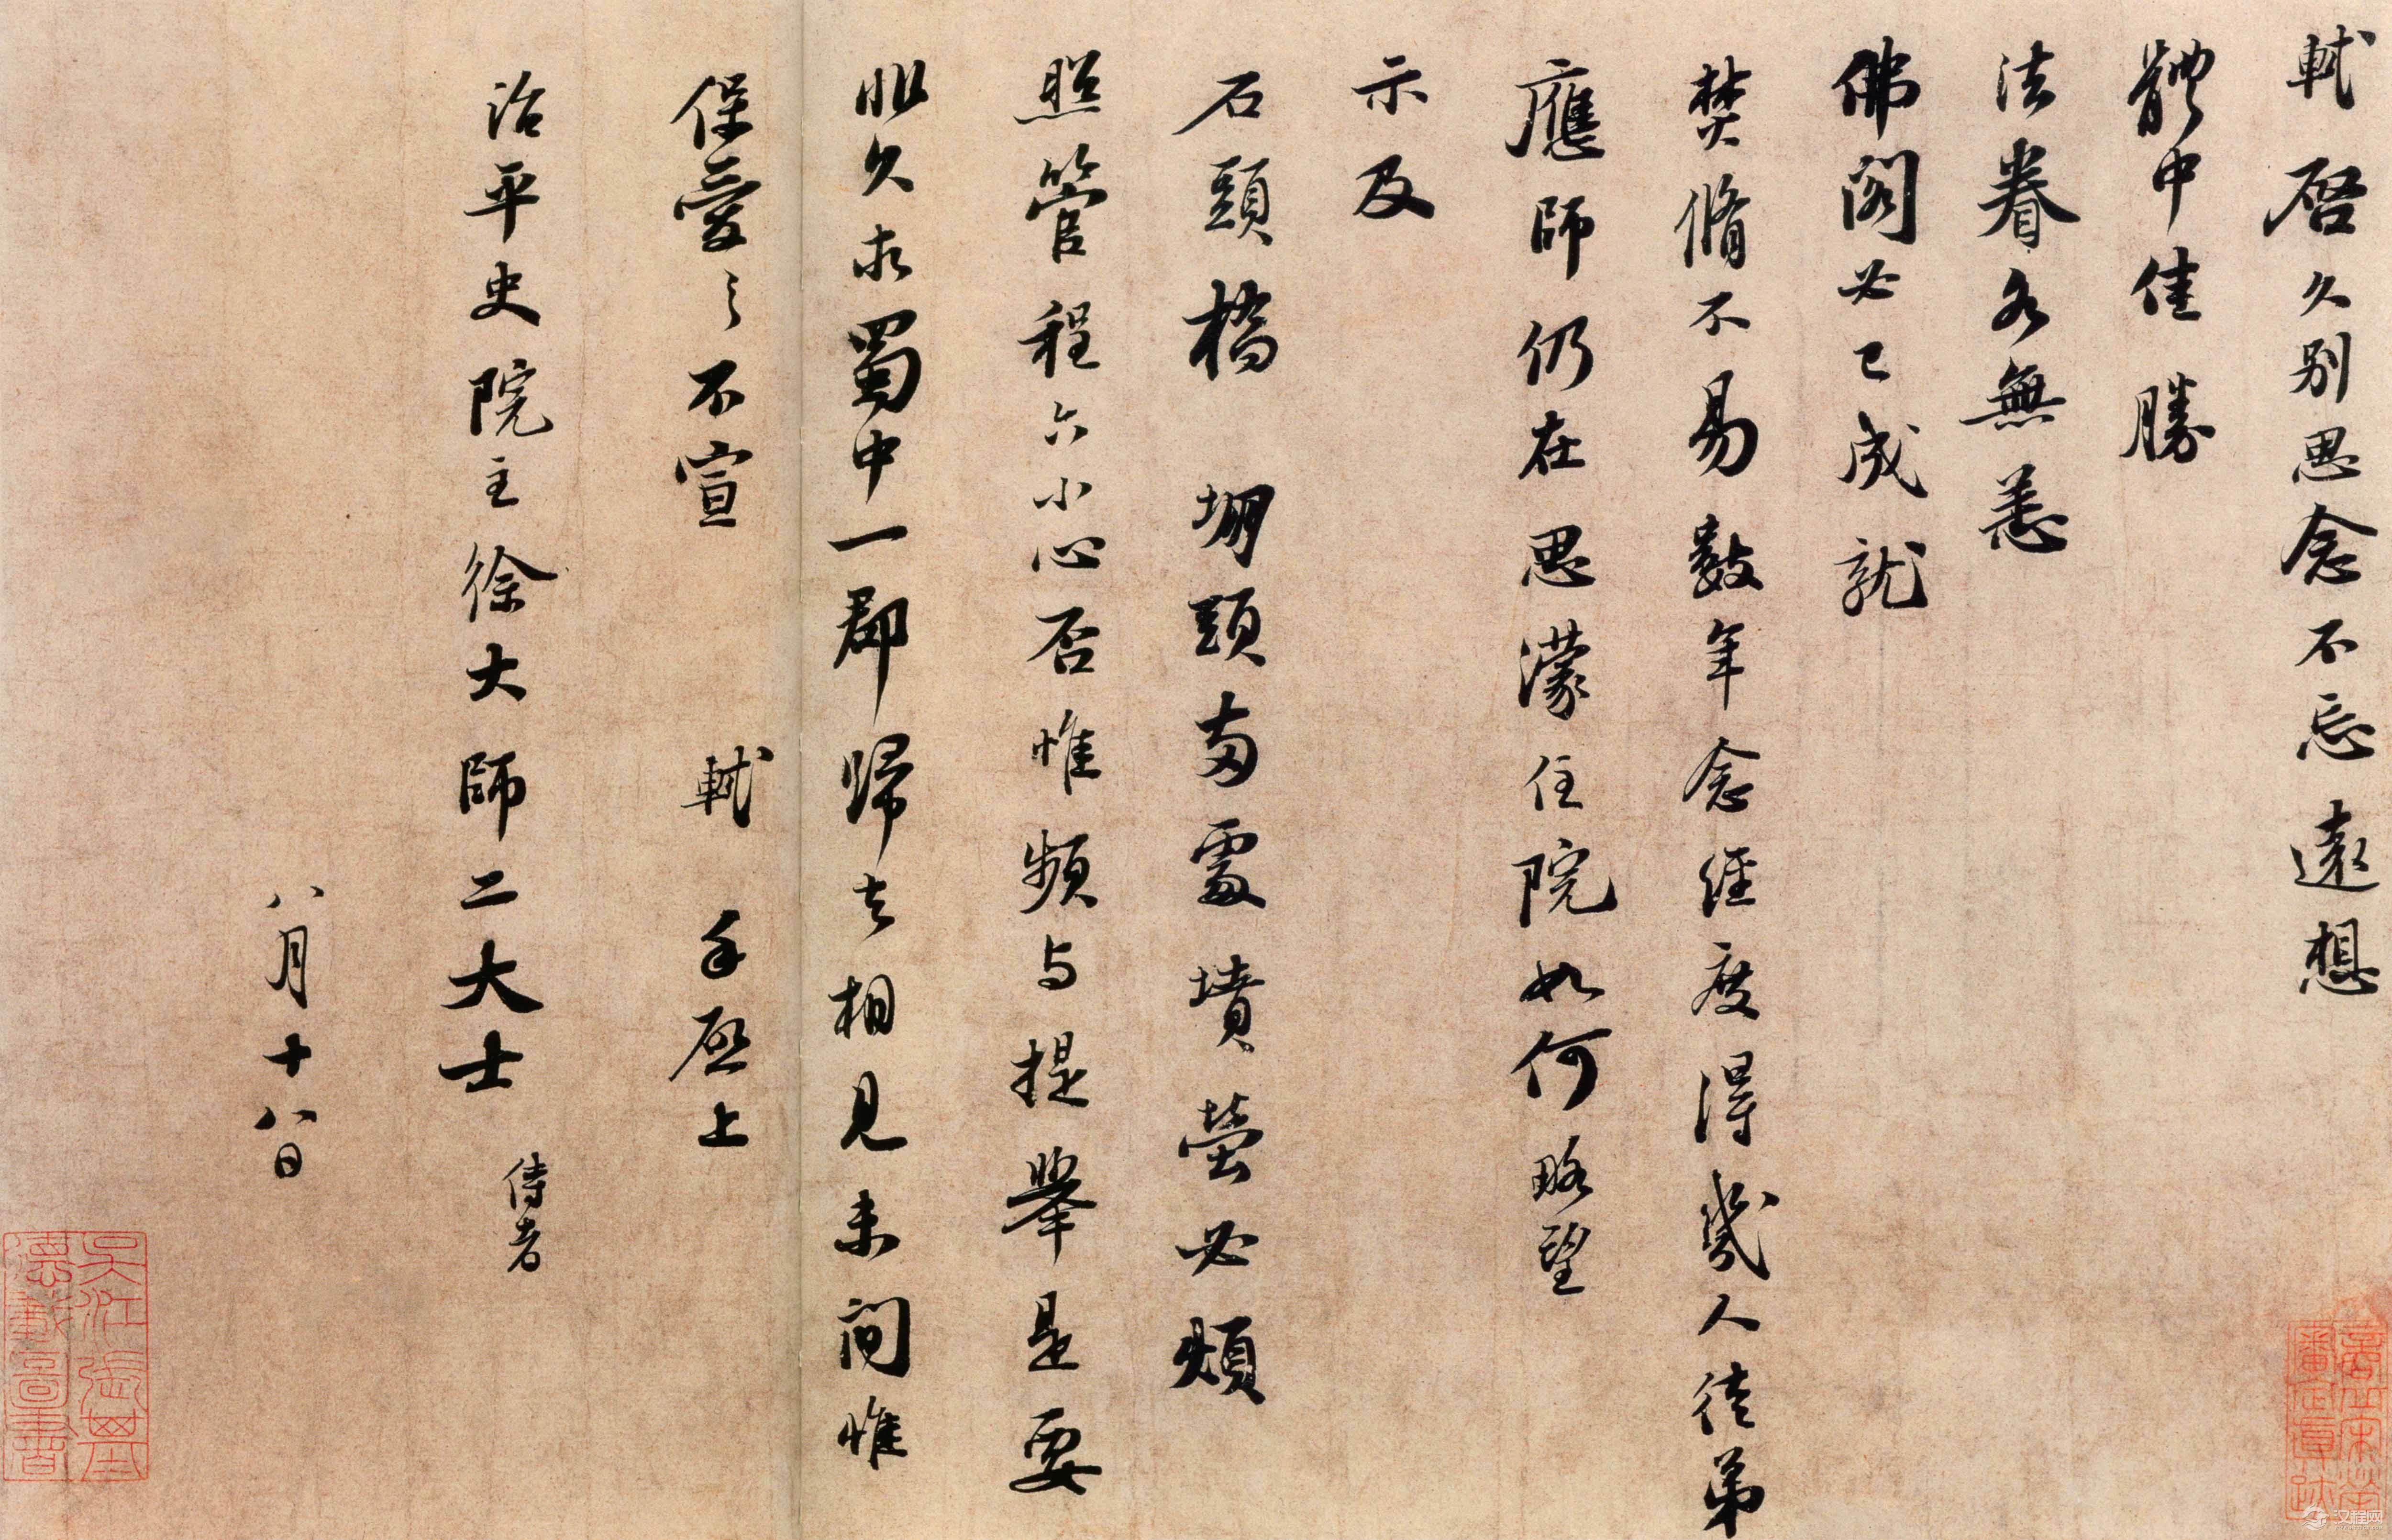 軾啓久別思念不忘遠想
體中佳勝
法眷各無恙
佛閣必已成就
焚脩不易數年念經度得幾人徒弟
應師仍在思濛住院如何略望
示及
石頭橋堋頭兩處墳塋必煩
照管程六小心否惟頻与提舉是要
非久求蜀中一郡歸去相見未間惟
保愛之不宣 軾手啓上
治平史院主徐大師二大士 侍者
八月十八日
汉程网